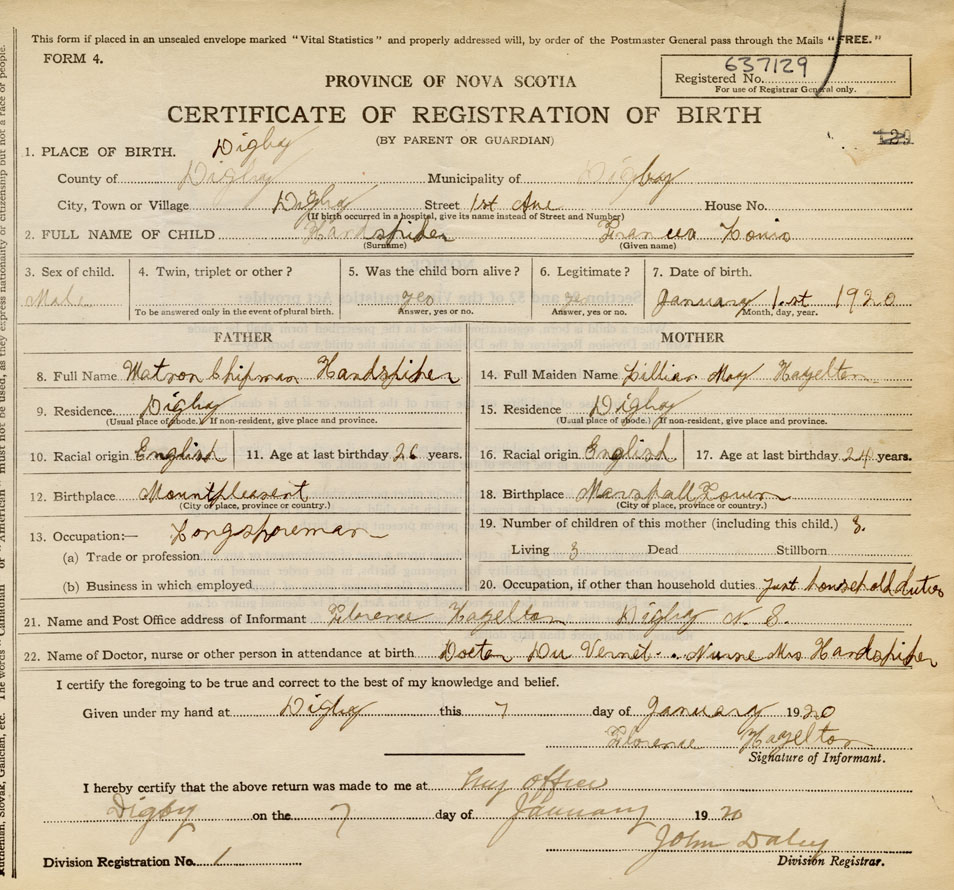 This form if placed in an unsealed envelope marked "Vital Statistics" and properly addressed will, by order of the Postmaster General pass through the Mails "FREE."
FORM 4.
637129
Registered No.
For use of Registrar General only.
PROVINCE OF NOVA SCOTIA
CERTIFICATE OF REGISTRATION OF BIRTH
(BY PARENT OR GUARDIAN)
129
1. PLACE OF BIRTH. Digby
County of Digby Municipality of Digby
City, Town or Village Digby Street 1st Ave House No.
(If birth occurred in a hospital, give its name instead of Street and Number)
2. FULL NAME OF CHILD Handspiker Francis Louis
(Surname) (Given name)
3. Sex of child. 4. Twin, triplet or other? 5. Was the child born alive? 6. Legitimate? 7. Date of birth.
Male yes yes January 1st 1920
To be answered only in the event of plural birth. Answer, yes or no. Answer, yes or no. Month, day, year.
FATHER MOTHER
8. Full Name Watson Chipman Handspiker 14. Full Maiden Name Lillian May Hazelton
9. Residence. Digby 15. Residence Digby
(Usual place of abode.) If non-resident, give place and province. (Usual place of abode.) If non-resident, give place and province.
10. Racial origin English 11. Age at last birthday 26 years. 16. Racial origin English 17. Age at last birthday 24 years.
12. Birthplace Mountpleasent 18. Birthplace Marshall Town
(City or place, province or country.) (City or place, province or country.)
13. Occupation:— Longshoreman 19. Number of children of this mother (including this child.) 3.
(a) Trade or profession Living 3 Dead Stillborn
(b) Business in which employed 20. Occupation, if other than household duties Just household duties
21. Name and Post Office address of Informant Florence Hazelton Digby N. S.
22. Name of Doctor, nurse or other person in attendance at birth Doctor Du Vernet.. Nurse Mrs Handspiker
I certify the foregoing to be true and correct to the best of my knowledge and belief.
Given under my hand at Digby this 7 day of January 1920
Florence Hazelton
Signature of Informant.
I hereby certify that the above return was made to me at My office
Digby on the 7 day of January 1920
John Daley
Division Registration No. 1 Division Registrar.